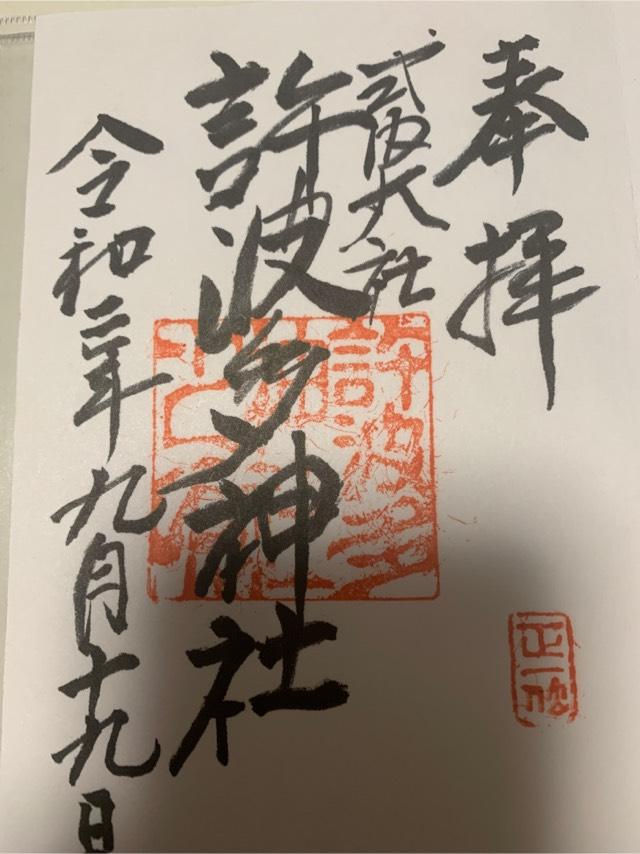 奉拝
式内大社
許波多神社
令和二年九月十九日
正一位